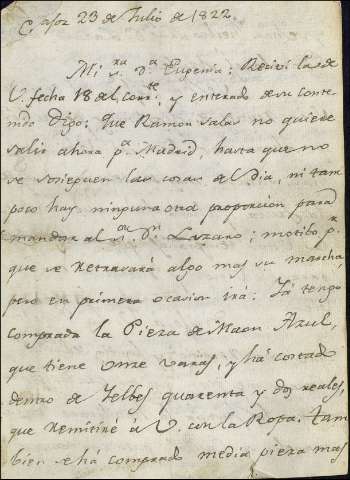 C. ajoz 23 de Julio de 1822.
Mi s.ra d.a Eugenia: Recivi la de
V. fecha 18 del corr.te, y enterado de su conte
nido Digo: Que Ramon Salas no quiere
salir ahora p.a Madrid, hasta que no
se sosieguen las cosas del dia, ni tam
poco hay ninguna otra proporcion para
mandar al s.or d.n Lazaro; motibo p.r
que se retrasará algo mas su marcha,
pero en primera ocasion irá: Ya tengo
comprada la Pieza de Maon Azul,
que tiene onze varas, y há costado
dentro de Yelbes quarenta y dos reales,
que remitiré á V. con la Ropa. Tam
bien se há comprado media pieza mas